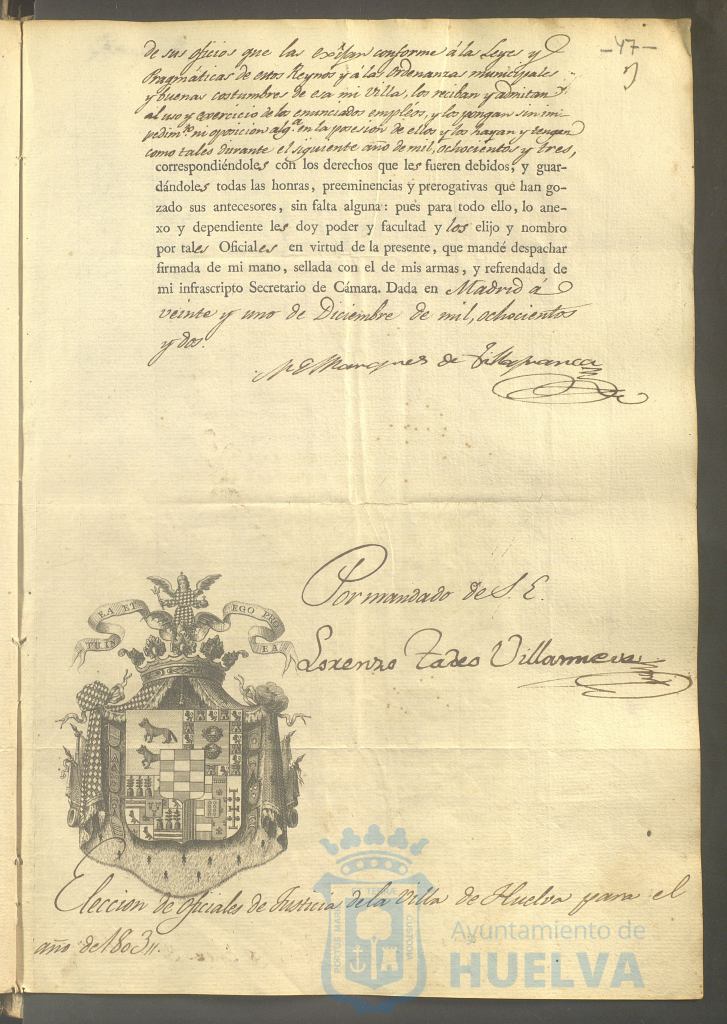 -47-
de sus oficios que las exîjan conforme á la Leyes y
Pragmáticas de estos Reynos y á las Ordenanzas municipales
y buenas costumbres de esa mi Villa, los reciban y admitan
al uso y exercicio de los enunciados empléos, y los pongan sin im-
pedim.to ni oposicion alg.a en la posesion de ellos y los hayan y tengan
como tales durante el siguiente año de mil, ochocientos y tres,
correspondiéndoles con los derechos que les fueren debidos, y guar-
dándoles todas las honras, preeminencias y prerogativas que han go-
zado sus antecesores, sin falta alguna: pues para todo ello, lo ane-
xo y dependiente les doy poder y facultad y los elijo y nombro
por tales Oficiales en virtud de la presente, que mandé despachar
firmada de mi mano, sellada con el de mis armas, y refrendada de
mi infrascripto Secretario de Cámara. Dada en Madrid á
veinte y uno de Diciembre de mil, ochocientos
y dos.
El Marques de Villafranca
Por mandado de S. E.
Lorenzo Tadeo Villanueva
EA ET
EGO PRO
TUIS
EA
Eleccion de Oficiales de Justicia de la Villa de Huelva para el
año de 1803
Ayuntamiento de
HUELVA